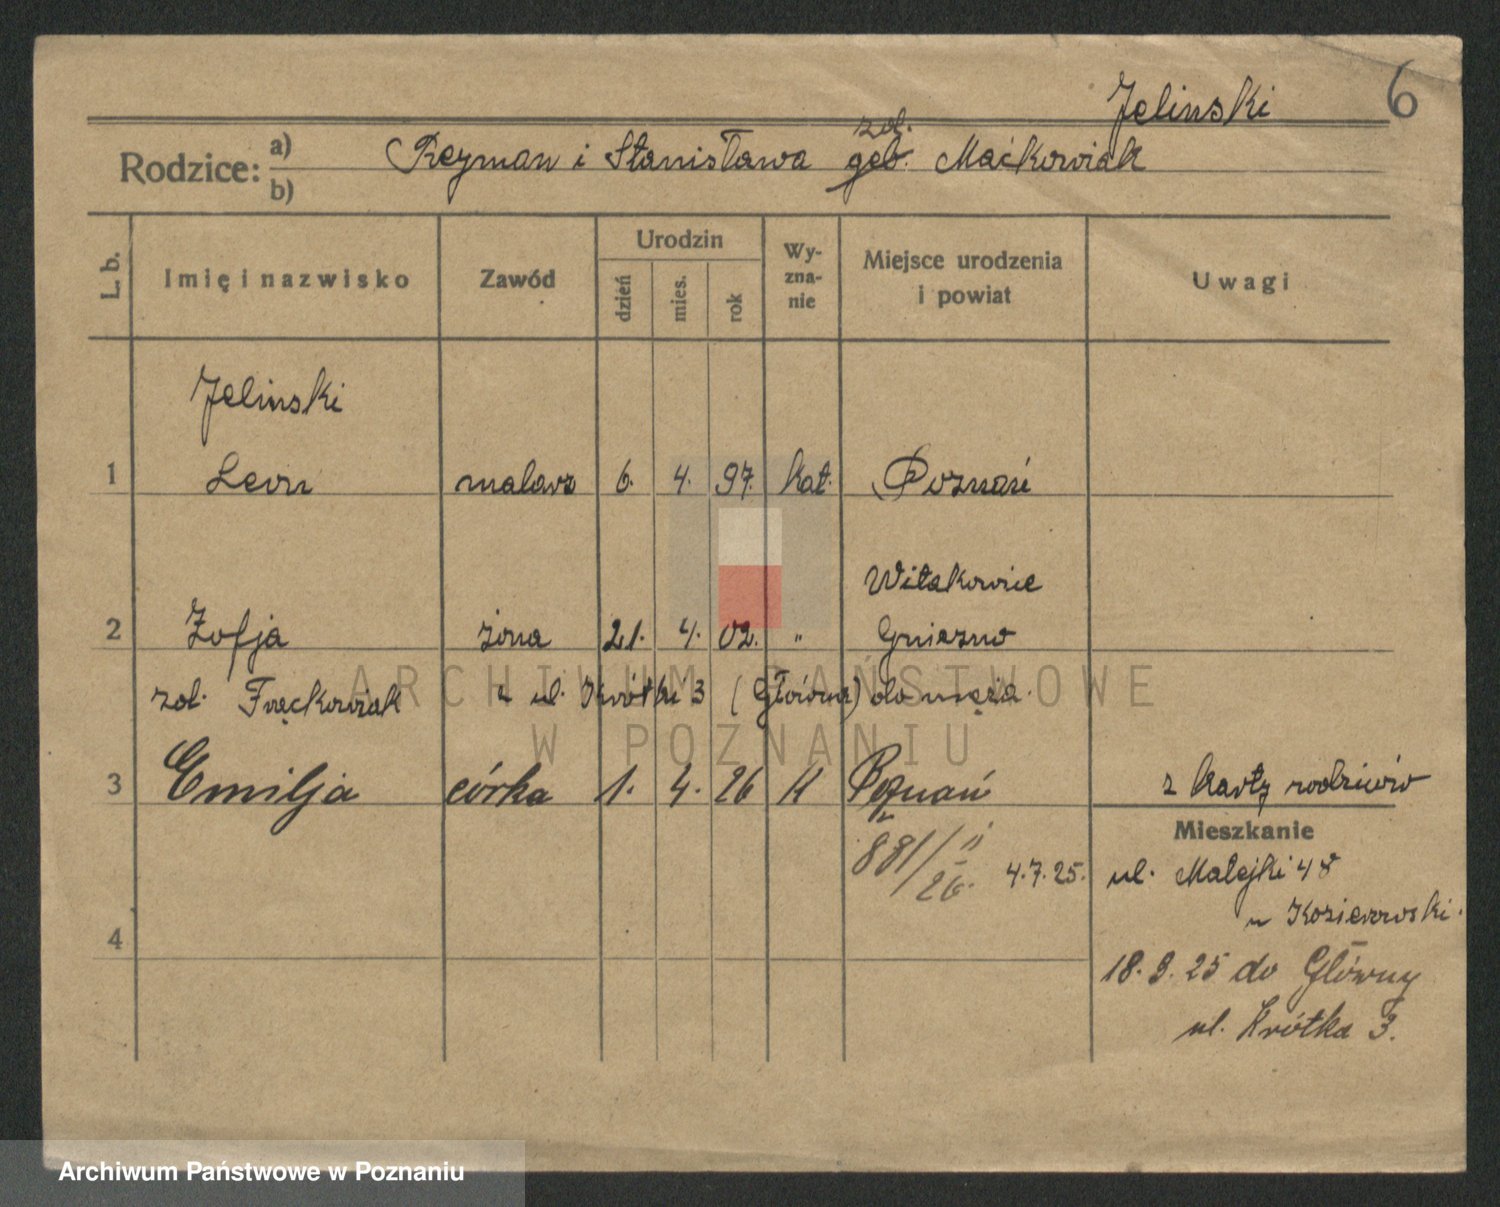 Jelinski 6
zal.
Rodzice: a) Reyman i Stanisława geb. Maćkowiak
b)
L. b. Imię i nazwisko Zawód Urodzin dzień mies. rok Wyznanie Miejsce urodzenia i powiat Uwagi
Jelinski
1 Leon malarz 6. 4. 97. kat. Poznań
Witakowice
2 Zofja żona 21. 4. 02. " Gniezno
zal. Frąckowiak z ul. Krótka 3 (Główna) do męża.
3 Emilja córka 1. 4. 26 K Poznań z karty rodziców
Mieszkanie
881/II 26. 4.7.25. ul. Matejki 48
u Kozierowski.
4
18.9.25 do Główny
ul. Krótka 3.
ARCHIWUM PAŃSTWOWE
W POZNANIU
Archiwum Państwowe w Poznaniu